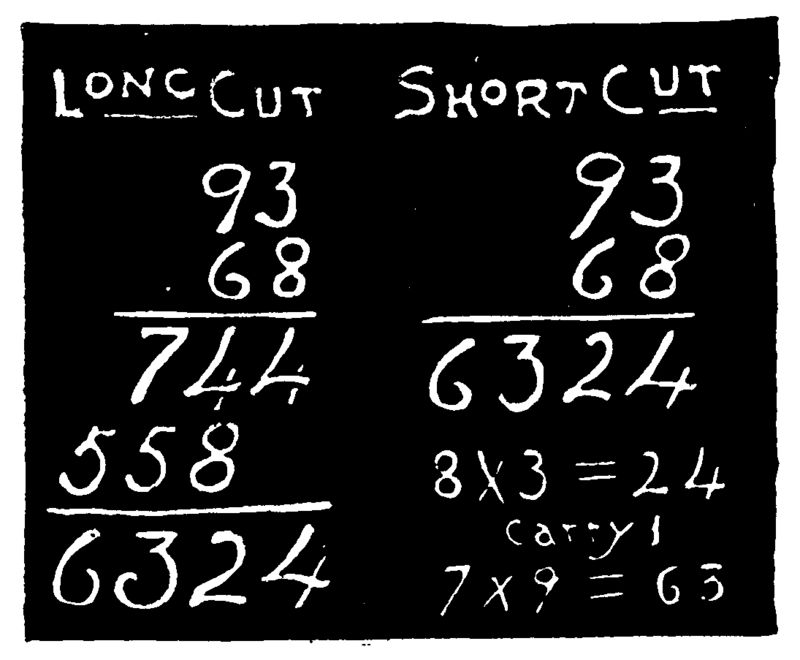 LONG CUT
93
68
744
558
6324
SHORT CUT
93
68
6324
8 X 3 = 24
carry 1
7 x 9 = 63